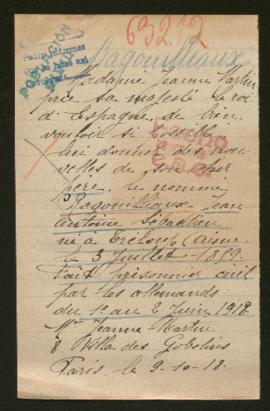 63212
POBLACION
Ragouilliaux
Madame Jeanne Martin
prie sa majesté le roi
d'Espagne de bien
vouloir si possible
lui donner des nou
velles de son cher
père le nommé
Ragouilliaux Jean
Antoine Sébastien
né à Trélou (Aisne)
le 3 Juillet 1859
fait prisonnier civil
par les allemands
du 1er au 2 Juin 1918.
Mme Jeanne Martin
8 Villa des Gobelins
Paris le 9-10-18.